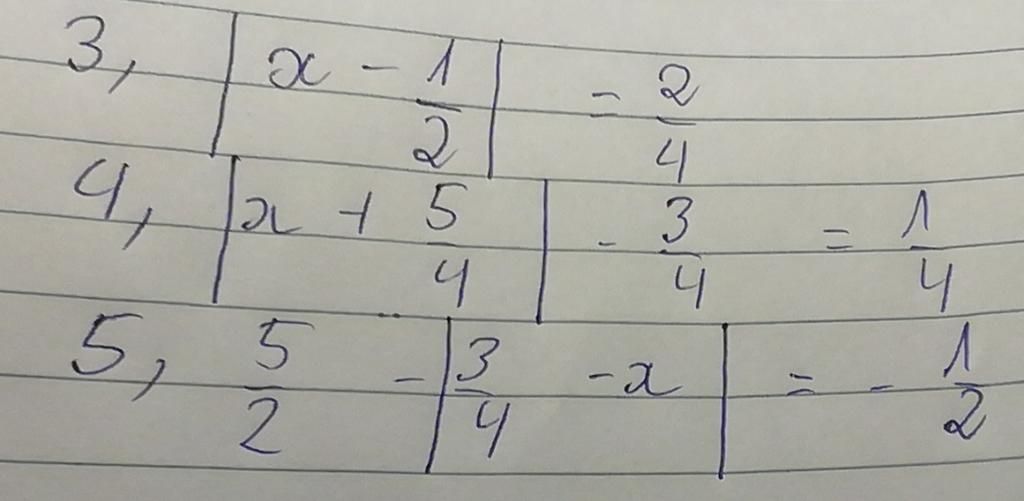 3, |x - 1/2| = 2/4
4, |x + 5/4| - 3/4 = 1/4
5, 5/2 - |3/4 - x| = - 1/2